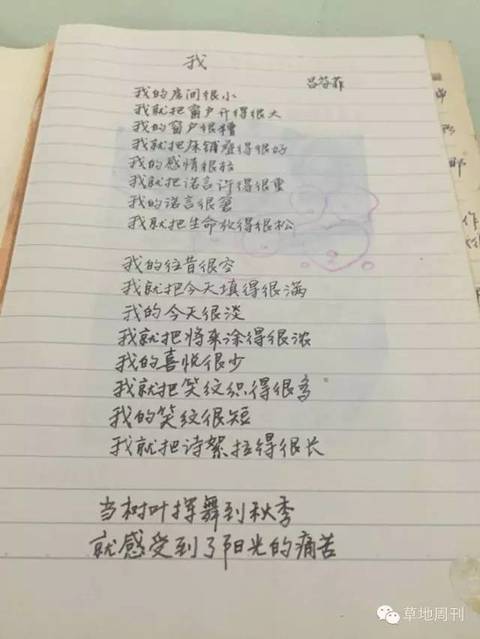 我
吕 菲
我的房间很小
我就把窗户开得很大
我的窗户很糟
我就把床铺叠得很好
我的感情很
我就把诺言许得很重
我的诺言很
我就把生命 得很松
我的往昔很空
我就把今天填得很满
我的今天很淡
我就把将来涂得很浓
我的喜悦很少
我就把笑纹织得很多
我的笑纹很短
我就把诗絮拉得很长
当树叶挥舞到秋季
就感受到了阳光的痛苦
草地周刊